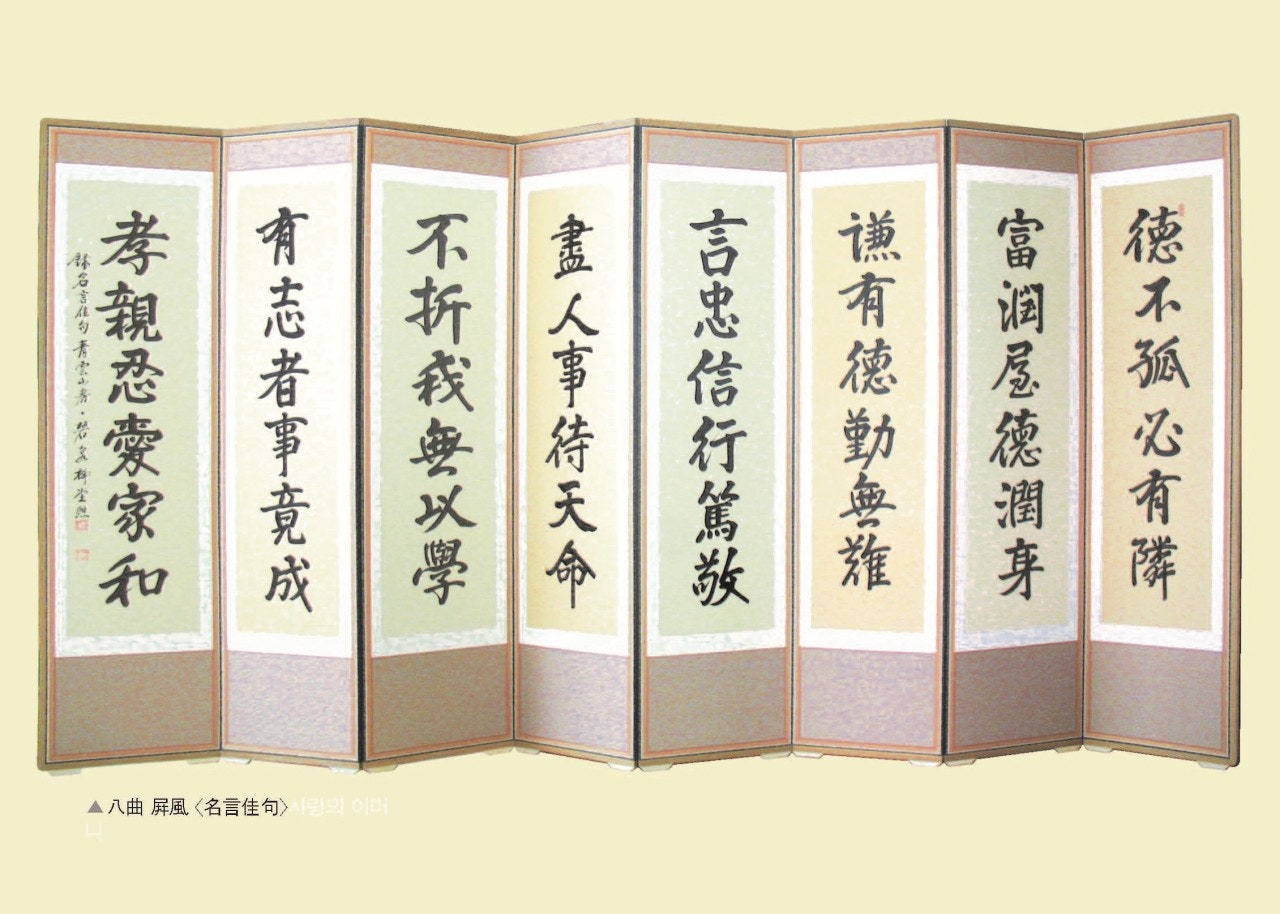 德不孤必有隣
富潤屋德潤身
謙有德勤無難
言忠信行篤敬
盡人事待天命
不折我無以學
有志者事竟成
孝親忍愛家和
錄名言佳句 靑雲山房
▲八曲 屛風〈名言佳句〉사랑의 어머
니